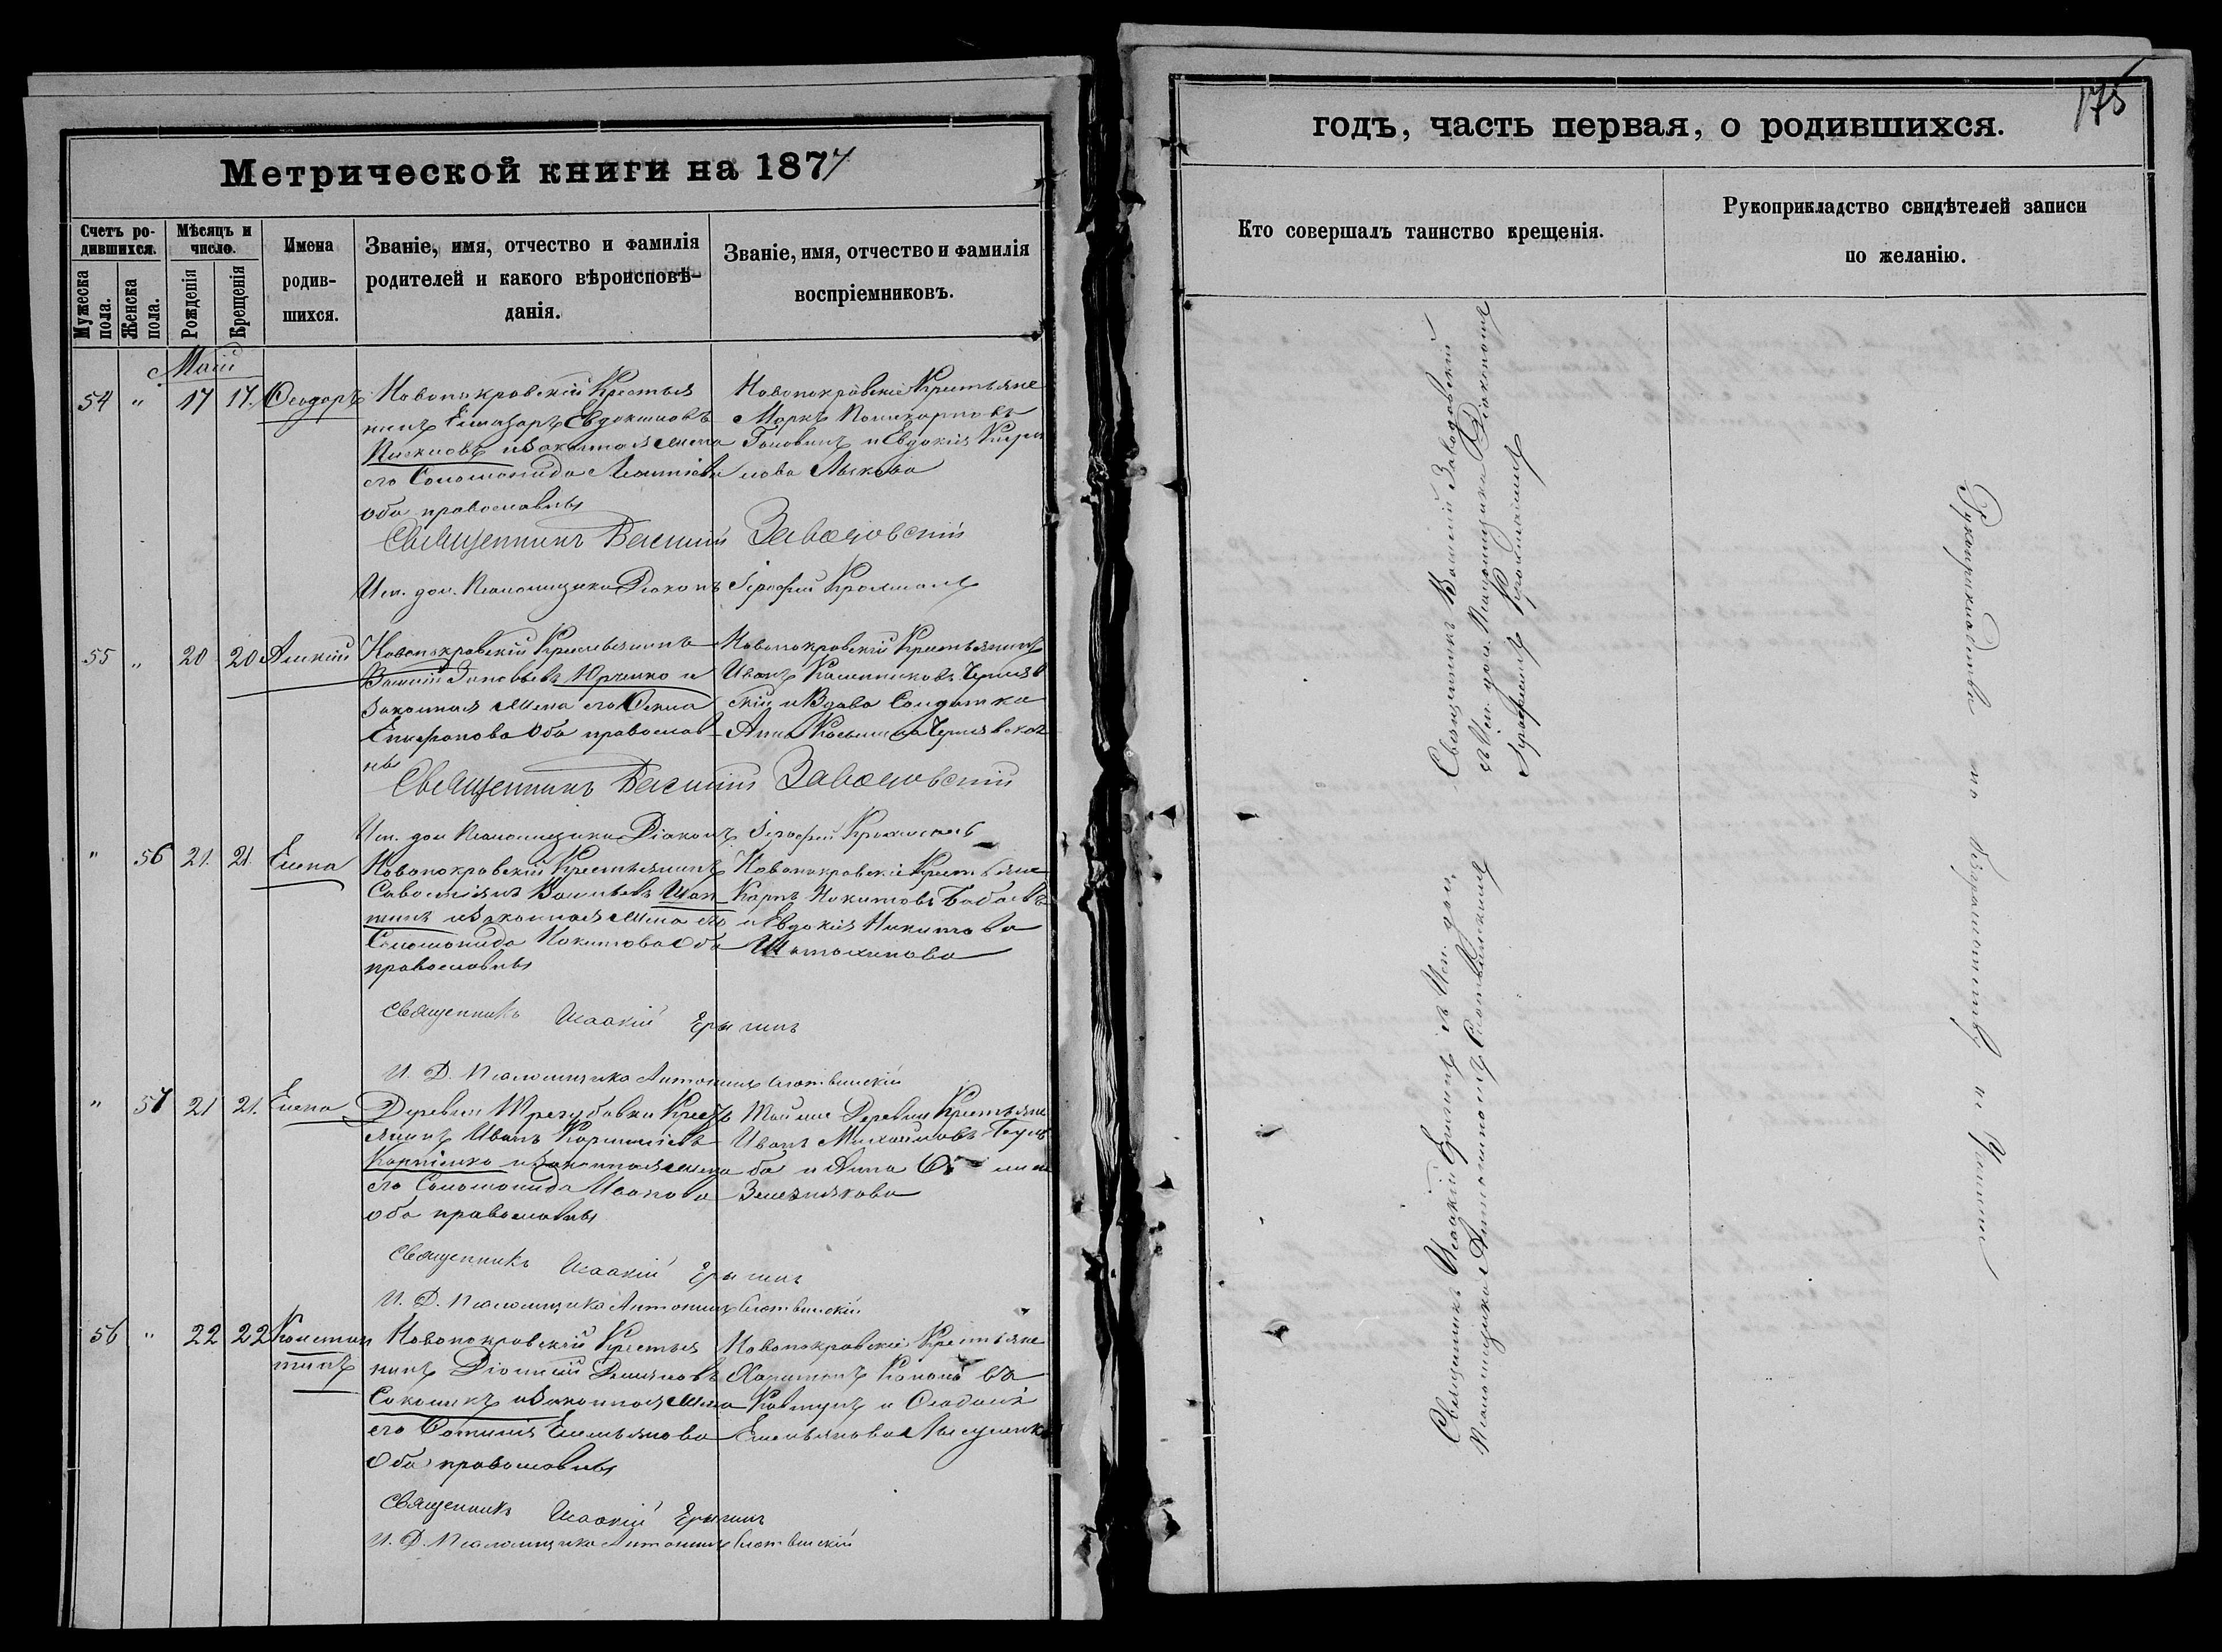 Метрической книги на 1877
Счетъ родившихся.
Мѣсяцъ и число.
Имена родившихся.
Званіе, имя, отчество и фамилія
родителей и какого вѣроисповѣ-
данія.
Званіе, имя, отчество и фамилія
воспріемниковъ.
Мужеска пола.
Женска пола.
Рожденія
Крещенія
Маій
54 " 17 17. Ѳеодоръ
Новопокровскій Крестья
нинъ Елиазаръ Евдокимовъ
и законная жена
его Соломонида Леонтіева
оба православны
Новопокровскіе Крестьяне
Маркъ Поликарповъ
Головинъ и Евдокія
Лыкова
Священникъ Василій Заводовскій
Исп. дол. Псаломщика Діаконъ Іерофей Крохмаль
55 " 20 20 Алексій
Новопокровскій Крестьянинъ
Василій Зиновьевъ Юрченко и
законная жена его Ѳекла
Епифанова Оба православ
ны
Новопокровскій Крестьянинъ
Иванъ Чернявскій
и Вдова Солдатка
Анна Чернявская
Священникъ Василій Заводовскій
Исп. дол. Псаломщика Діаконъ Іерофей Крохмаль
" 56 21. 21. Елена
Новопокровскій Крестьянинъ
Савостіянъ Васильевъ
и законная жена его
Соломонида Никитова Оба
православны
Новопокровскіе Крестьяне
Карпъ Никитовъ
и Евдокія Никитова
Шатохинова
Священникъ Исаакій Ерыгинъ
И. Д. Псаломщика Антонинъ
" 57 21 21. Елена
Деревни Трегубовки Кресть
янинъ Иванъ Корнильевъ
Карпенко и законная жена
его Соломонида Иванова
оба православны
Той же Деревни Крестьяне
Иванъ Михайловъ
и Анна
Железнякова
Священникъ Исаакій Ерыгинъ
И. Д. Псаломщика Антонинъ
56 " 22 22 Констан
тинъ
Новопокровскій Крестья
нинъ Діонисій Демьяновъ
и законная жена
его Фотинія Емельянова
Оба православны
Новопокровскіе Крестьяне
Харитонъ Кононовъ
Ковтунъ и Ѳеодосія
Емельянова
Священникъ Исаакій Ерыгинъ
И. Д. Псаломщика Антонинъ
годъ, часть первая, о родившихся.
175
Кто совершалъ таинство крещенія.
Рукоприкладство свидѣтелей записи
по желанію.
Священникъ Василій Заводовскій
съ Исп. дол. Псаломщика Діакономъ
Іерофеемъ Крохмалемъ
Священникъ Исаакій Ерыгинъ съ Исп. дол.
Псаломщика Антониномъ
Рукоприкладства по безграмотству не учинили